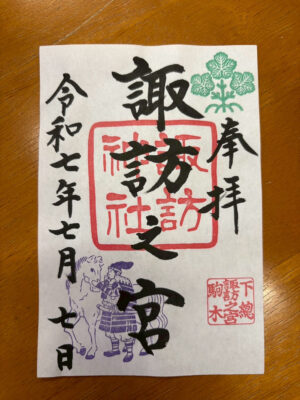 奉拝
諏訪之宮
諏訪
神社
下總
諏訪之宮
駒木
令和七年七月七日